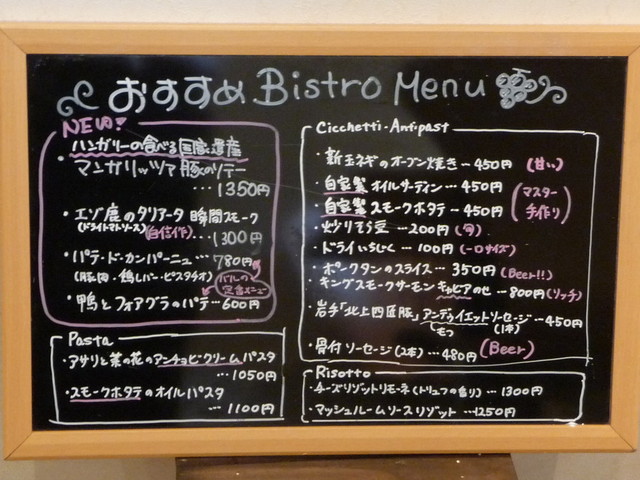 おすすめ Bistro Menu
NEW!
・ハンガリーの食べる国宝遺産
マンガリッツァ豚のソテー
…1350円
・エゾ鹿のタリアータ 瞬間スモーク
(ドライトマトソース) (自信作) …1300円
・パテ・ド・カンパーニュ… 780円
(豚肉・鶏レバー・ピスタチオ) バルの定番メニュー
・鴨とフォアグラのパテ…600円
Pasta
・アサリと菜の花のアンチョビクリームパスタ
…1050円
・スモークホタテのオイルパスタ
…1100円
Cicchetti・Antipast
・新玉ネギのオーブン焼き…450円 (甘い)
・自家製オイルサーディン…450円
・自家製スモークホタテ…450円 (マスター手作り)
・炒りそら豆…200円 (旬)
・ドライいちじく…100円 (一口サイズ)
・ポークタンのスライス…350円 (Beer!!)
・キングスモークサーモン キャビアのせ…800円 (リッチ)
・岩手「北上四元豚」アンデュイエットソーセージ…450円
モツ (1本)
・骨付ソーセージ(2本)…480円 (Beer)
Risotto
・チーズリゾットリモーネ(トリュフの香り)…1300円
・マッシュルームソースリゾット…1250円